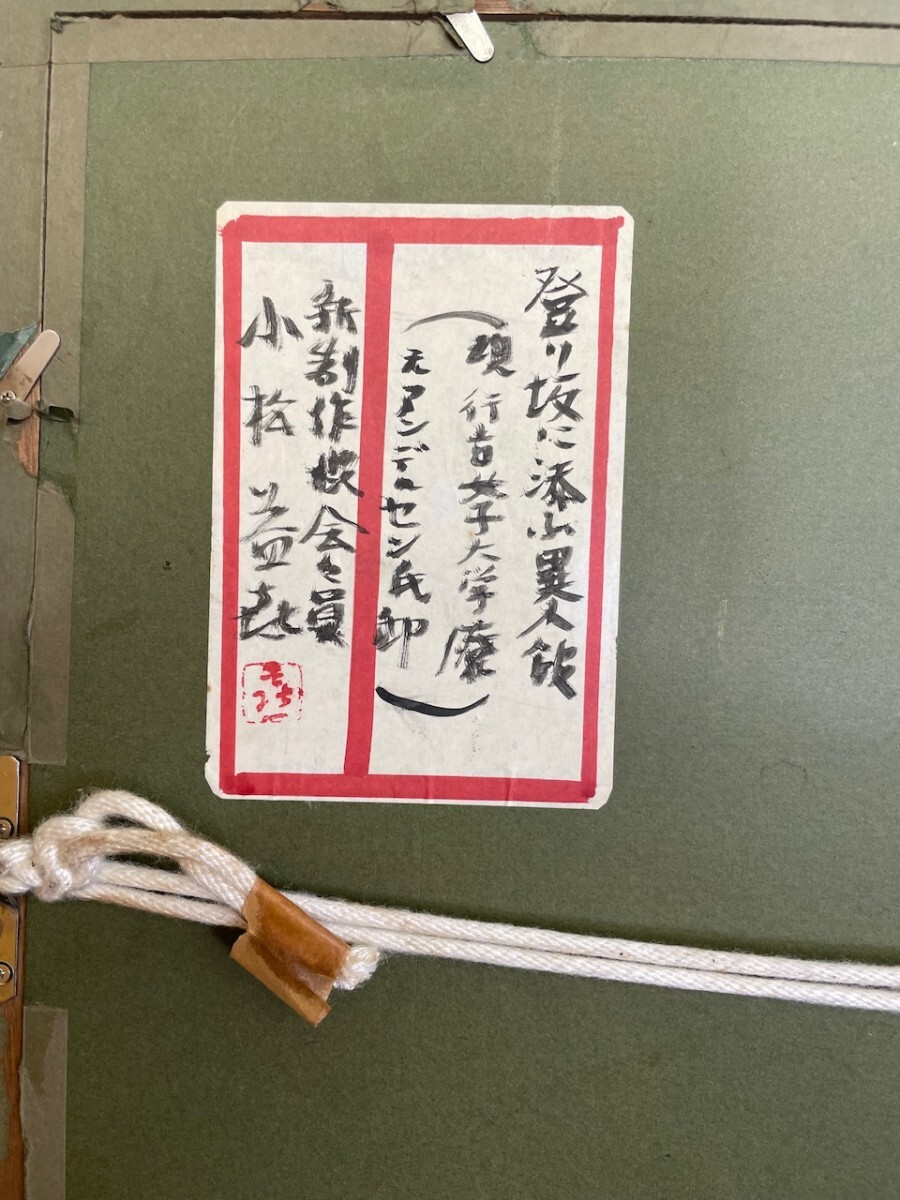 登り坂に添ふ異人館
(現 行吉女子大学寮
元アンデルセン氏邸)
新制作協会々員
小松益喜